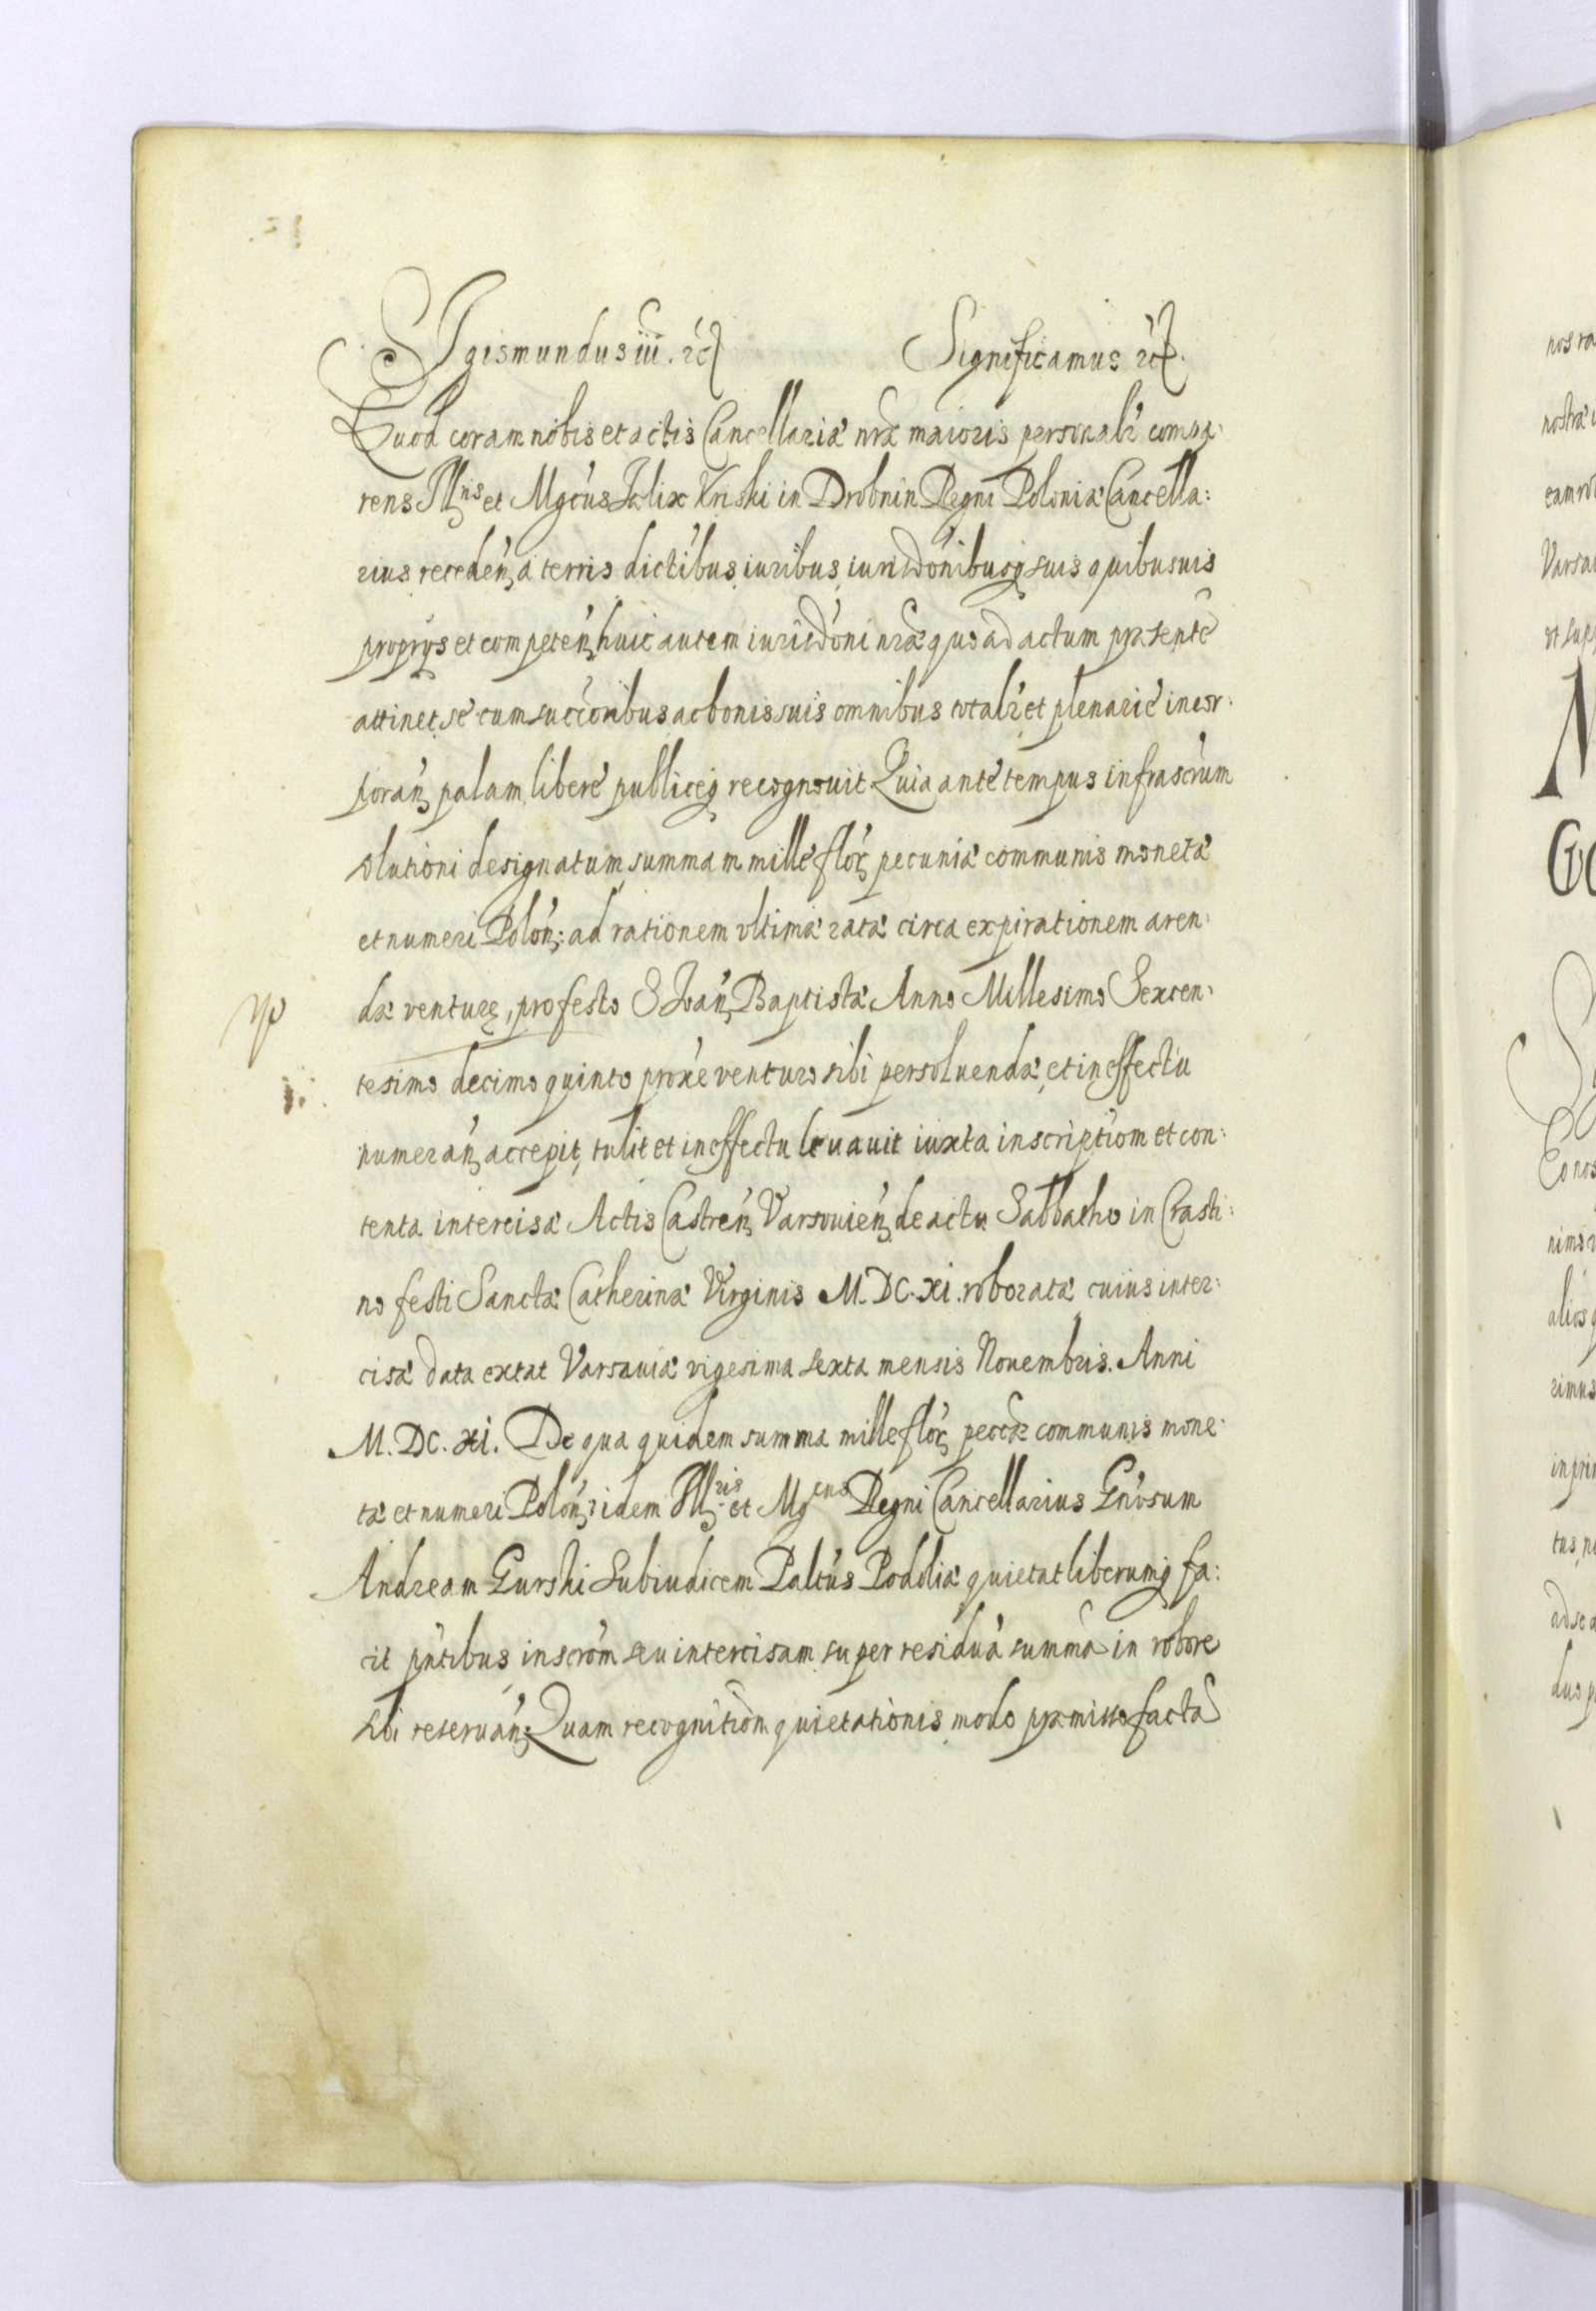 Sigismundus iii. etc Significamus etc.
Quod coram nobis et actis Cancellariæ nræ maioris personalr compa:
rens Illris et Mgcus Fælix Kriski in Drobnin Regni Poloniæ Cancella:
rius receden, a terris dictibus, iuribus, iurisdonibusq suis quibusuis
proprijs et competen, huic autem iurisdoni nræ quo ad actum præsente
attinet, se cum succoribus ac bonis suis omnibus totalr, et plenarie incor:
poran, palam, libere publiceq recognouit. Quia ante tempus infrascrum
solutioni designatum, summam mille flor, pecuniæ communis monetæ
et numeri Polon: ad rationem vltimæ ratæ circa expirationem aren:
dæ venturę, pro festo S Ioan, Baptistæ Anno Millesimo Sexcen:
tesimo decimo quinto proxe venturo sibi persoluendæ, et in effectu
numeran, accepit, tulit et in effectu leuauit iuxta inscriptiom et con:
tenta intercisæ Actis Castren, Varsouien, de actu Sabbatho in Crasti:
no festi Sanctæ Catherinæ Virginis M. DC. xi. roboratæ cuius inter:
cisæ data extat Varsauiæ vigesima sexta mensis Nouembris. Anni
M. DC. xi. De qua quidem summa mille flor, peccæ communis mone:
tæ et numeri Polon, idem Illris et Mgcus Regni Cancellarius Gnosum
Andream Gurski Subiudicem Paltus Podoliæ quietat liberumq fa:
cit pntibus, inscrom seu intercisam super residua summa in robore
sibi reseruan, Quam recognition quietationis modo præmisso facta